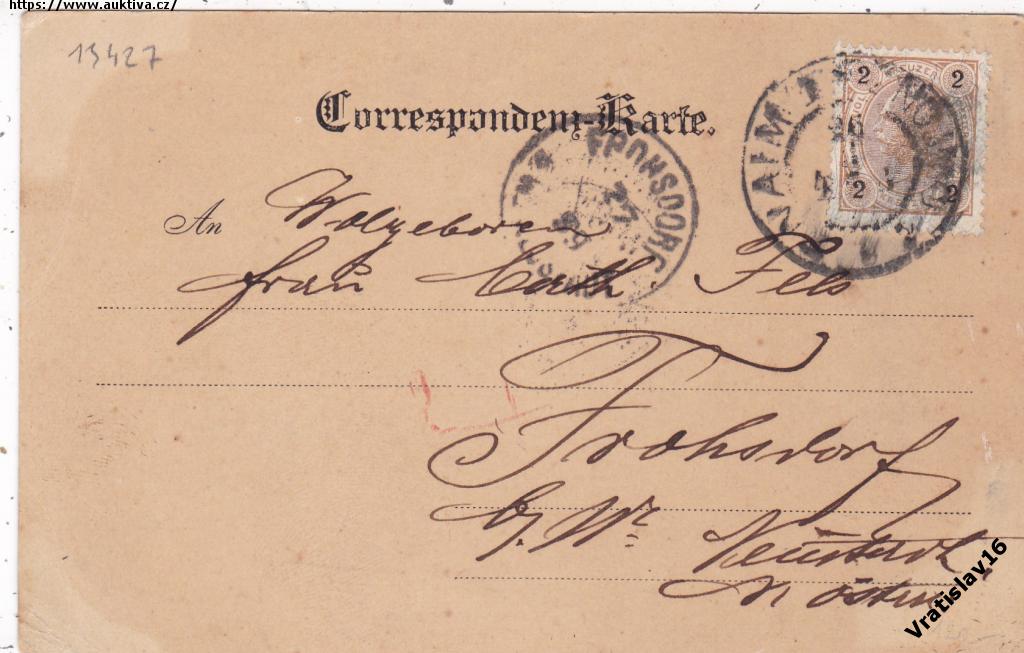 https://www.auktiva.cz/
13427
Correspondenz-Karte.
2 KREUZER 2
2 2
ZNAIM STADT ZNOJMO
FROHSDORF
An Wolgeboren
Frau Cath. Fels
Frohsdorf
b/ Wr. Neustadt
N Östr
Vratislav16